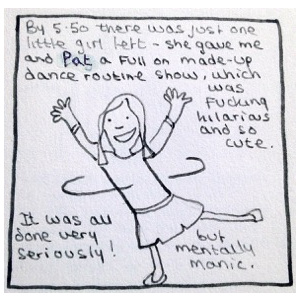 By 5.50 there was just one
little girl left - she gave me
and Pat a full on made-up
dance routine show, which
was
fucking
hilarious
and so
cute.
It was all
done very
seriously!
but
mentally
manic.